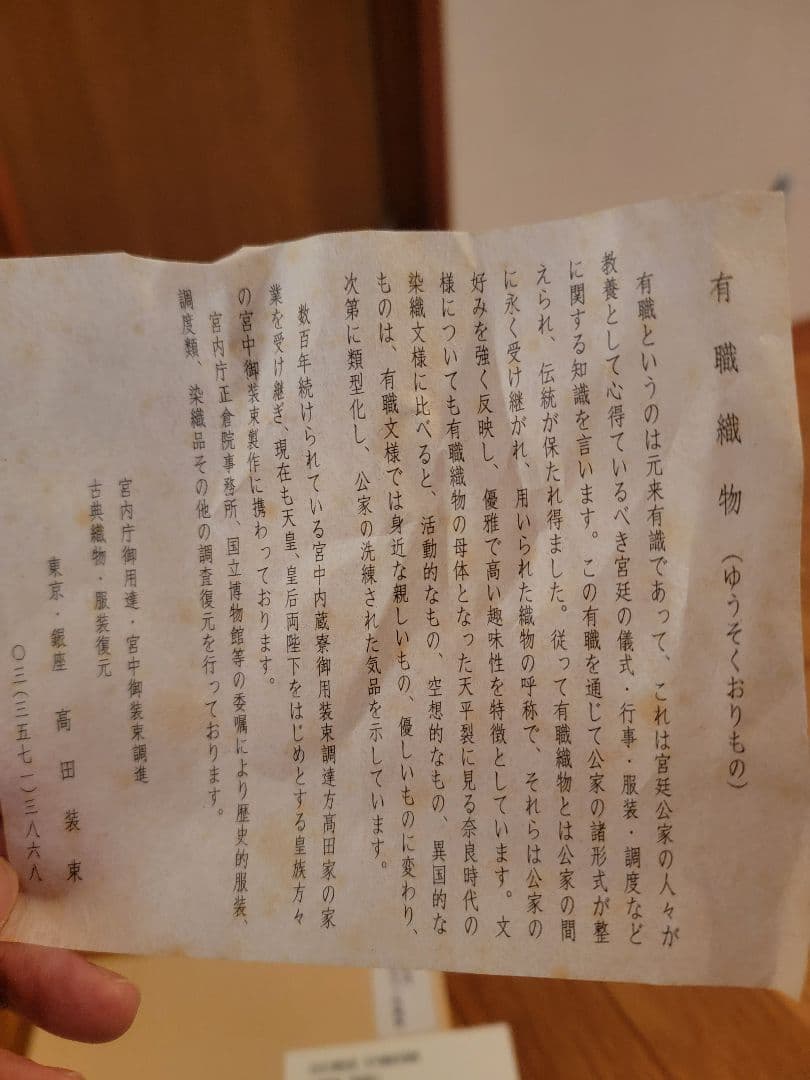 有職織物（ゆうそくおりもの）
有職というのは元来有識であって、これは宮廷公家の人々が
教養として心得ているべき宮廷の儀式・行事・服装・調度など
に関する知識を言います。この有職を通じて公家の諸形式が整
えられ、伝統が保たれ得ました。従って有職織物とは公家の間
に永く受け継がれ、用いられた織物の呼称で、それらは公家の
好みを強く反映し、優雅で高い趣味性を特徴としています。文
様についても有職織物の母体となった天平裂に見る奈良時代の
染織文様に比べると、活動的なもの、空想的なもの、異国的な
ものは、有職文様では身近な親しいもの、優しいものに変わり、
次第に類型化し、公家の洗練された気品を示しています。
数百年続けられている宮中内蔵寮御用装束調達方高田家の家
業を受け継ぎ、現在も天皇、皇后両陛下をはじめとする皇族方々
の宮中御装束製作に携わっております。
宮内庁正倉院事務所、国立博物館等の委嘱により歴史的服装、
調度類、染織品その他の調査復元を行っております。
宮内庁御用達・宮中御装束調進
古典織物・服装復元
東京・銀座 高田装束
〇三（三五七一）三八六八